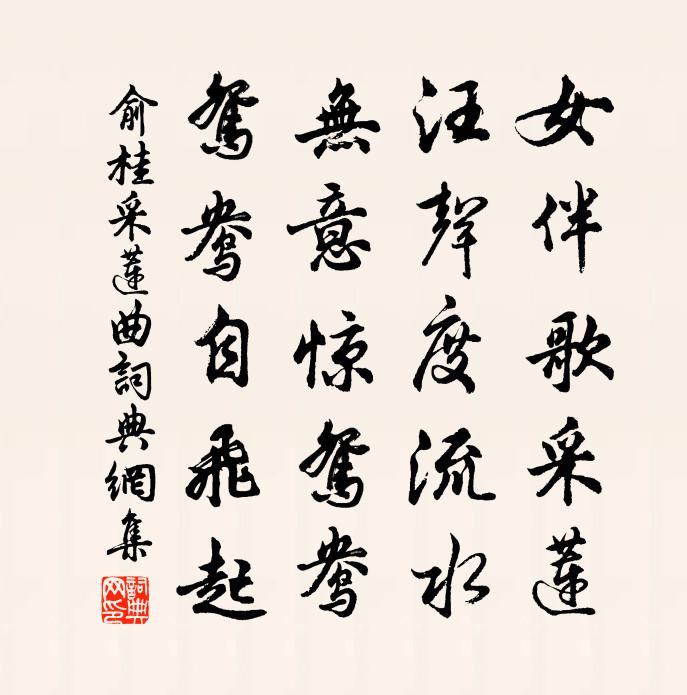 女伴歌采蓮
汪聲度流水
無意惊鴛鴦
鴛鴦自飛起
俞桂采蓮曲詞典網集
詞典網印